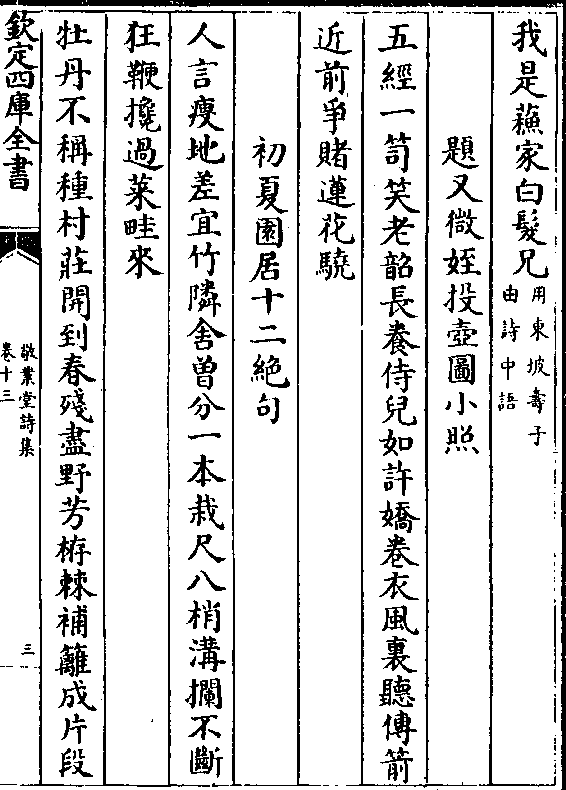 我是蘓家白髮兄用東坡壽子由詩中語
題又微姪投壺圖小照
五經一笥笑老韶長養侍兒如許嬌卷衣風裏聽傳箭
近前爭賭蓮花驍
初夏園居十二絕句
人言瘦地差宜竹隣舍曽分一本栽尺八梢溝攔不斷
狂鞭攙過菜畦來
牡丹不稱種村莊開到春殘盡野芳栫棘補籬成片段
欽定四庫全書
敬業堂詩集
卷十三
三